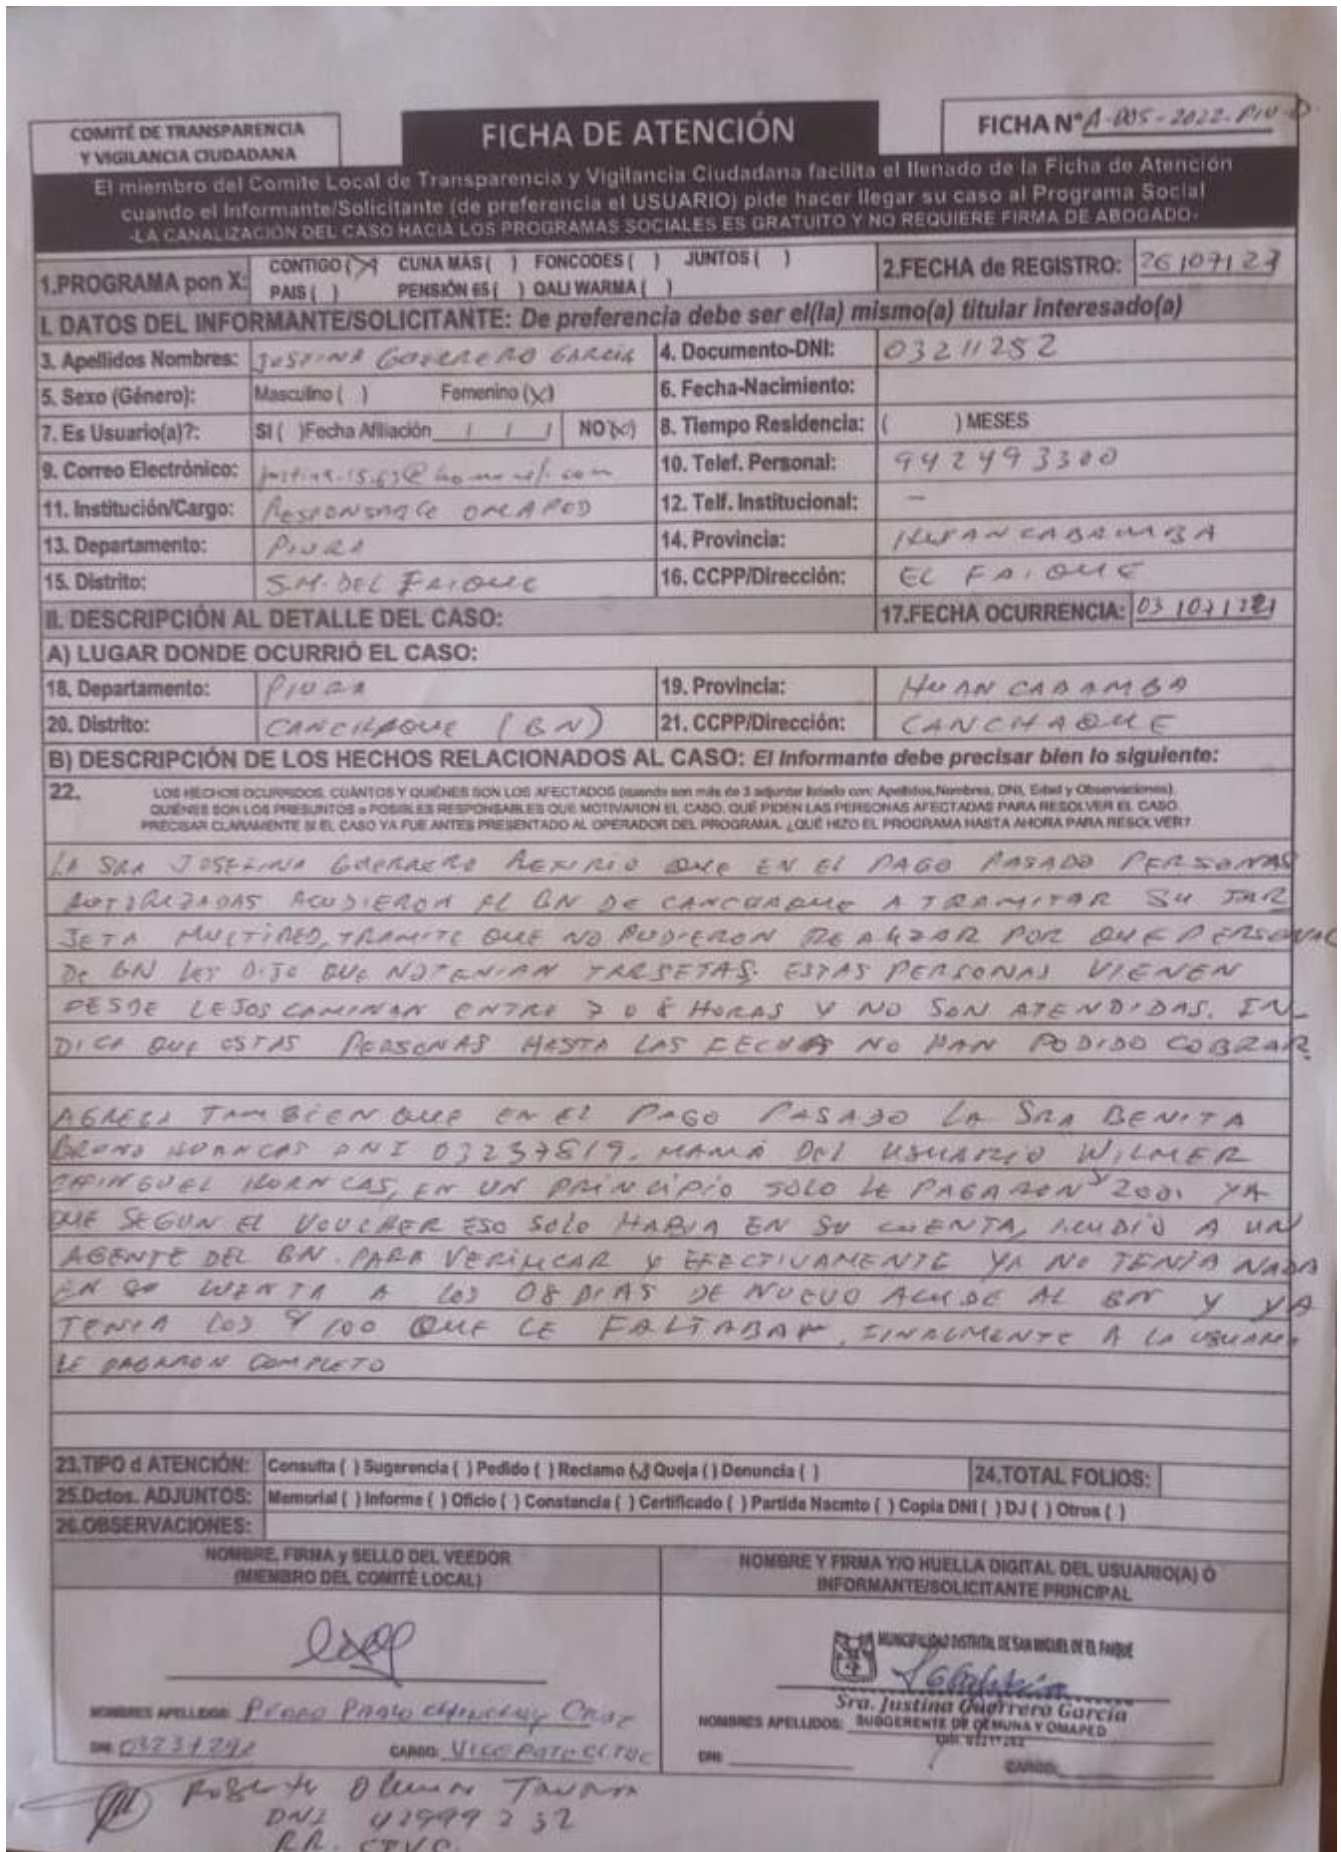 COMITÉ DE TRANSPARENCIA
Y VIGILANCIA CIUDADANA
FICHA DE ATENCIÓN
FICHA N° A-005-2022-PIU-D
El miembro del Comite Local de Transparencia y Vigilancia Ciudadana facilita el llenado de la Ficha de Atención
cuando el Informante/Solicitante (de preferencia el USUARIO) pide hacer llegar su caso al Programa Social
-LA CANALIZACIÓN DEL CASO HACIA LOS PROGRAMAS SOCIALES ES GRATUITO Y NO REQUIERE FIRMA DE ABOGADO-
1.PROGRAMA pon X: CONTIGO (X) CUNA MÁS ( ) FONCODES ( ) JUNTOS ( )
PAIS ( ) PENSIÓN 65 ( ) QALI WARMA ( )
2.FECHA de REGISTRO: 26/07/22
I. DATOS DEL INFORMANTE/SOLICITANTE: De preferencia debe ser el(la) mismo(a) titular interesado(a)
3. Apellidos Nombres: JUSTINA GUERRERO GARCIA 4. Documento-DNI: 03211252
5. Sexo (Género): Masculino ( ) Femenino (X) 6. Fecha-Nacimiento:
7. Es Usuario(a)?: SI ( )Fecha Afiliación / / / NO (X) 8. Tiempo Residencia: ( ) MESES
9. Correo Electrónico: 10. Telef. Personal: 942493300
11. Institución/Cargo: RESPONSABLE OMAPED 12. Telf. Institucional: -
13. Departamento: PIURA 14. Provincia: HUANCABAMBA
15. Distrito: S.M. DEL FAIQUE 16. CCPP/Dirección: EL FAIQUE
II. DESCRIPCIÓN AL DETALLE DEL CASO: 17.FECHA OCURRENCIA: 03/07/
A) LUGAR DONDE OCURRIÓ EL CASO:
18. Departamento: PIURA 19. Provincia: HUANCABAMBA
20. Distrito: CANCHAQUE (BN) 21. CCPP/Dirección: CANCHAQUE
B) DESCRIPCIÓN DE LOS HECHOS RELACIONADOS AL CASO: El Informante debe precisar bien lo siguiente:
22. LOS HECHOS OCURRIDOS, CUÁNTOS Y QUIÉNES SON LOS AFECTADOS (cuando son más de 3 adjuntar listado con: Apellidos,Nombres, DNI, Edad y Observaciones).
QUIÉNES SON LOS PRESUNTOS o POSIBLES RESPONSABLES QUE MOTIVARON EL CASO. QUÉ PIDEN LAS PERSONAS AFECTADAS PARA RESOLVER EL CASO
PRECISAR CLARAMENTE SI EL CASO YA FUE ANTES PRESENTADO AL OPERADOR DEL PROGRAMA. ¿QUÉ HIZO EL PROGRAMA HASTA AHORA PARA RESOLVER?
LA SRA JOSEFINA GUERRERO REFIRIO QUE EN EL PAGO PASADO PERSONAS
AUTORIZADAS ACUDIERON AL BN DE CANCHAQUE A TRAMITAR SU TAR
JETA MULTIRED, TRAMITE QUE NO PUDIERON REALIZAR POR QUE PERSONAL
DE BN LES DIJO QUE NO TENIAN TARJETAS. ESTAS PERSONAS VIENEN
DESDE LEJOS CAMINAN ENTRE 7 o 8 HORAS Y NO SON ATENDIDAS. IN_
DICA QUE ESTAS PERSONAS HASTA LAS FECHAS NO HAN PODIDO COBRAR.
AGREGA TAMBIEN QUE EN EL PAGO PASADO LA SRA BENITA
HUANCAS DNI 03237819. MAMÁ DEL USUARIO WILMER
CHINGUEL HUANCAS, EN UN PRINCIPIO SOLO LE PAGARON S/ 200. YA
QUE SEGUN EL VOUCHER ESO SOLO HABIA EN SU CUENTA, ACUDIO A UN
AGENTE DEL BN. PARA VERIFICAR Y EFECTIVAMENTE YA NO TENIA NADA
EN SU CUENTA A LOS 08 DIAS DE NUEVO ACUDE AL BN Y YA
TENIA LOS S/ 100 QUE LE FALTABAN, FINALMENTE A LA USUARIA
LE PAGARON COMPLETO
23.TIPO d ATENCIÓN: Consulta ( ) Sugerencia ( ) Pedido ( ) Reclamo (X) Queja ( ) Denuncia ( ) 24.TOTAL FOLIOS:
25.Dctos. ADJUNTOS: Memorial ( ) Informe ( ) Oficio ( ) Constancia ( ) Certificado ( ) Partida Nacmto ( ) Copia DNI ( ) DJ ( ) Otros ( )
26.OBSERVACIONES:
NOMBRE, FIRMA y SELLO DEL VEEDOR
(MIEMBRO DEL COMITÉ LOCAL)
NOMBRE Y FIRMA Y/O HUELLA DIGITAL DEL USUARIO(A) Ó
INFORMANTE/SOLICITANTE PRINCIPAL
MUNICIPALIDAD DISTRITAL DE SAN MIGUEL DE EL FAIQUE
Sra. Justina Guerrero García
SUBGERENTE DE DEMUNA Y OMAPED
DNI. 03211252
NOMBRES APELLIDOS: PEDRO PABLO CHINCHAY CRUZ
DNI: 03237292 CARGO: VICEPDTE CLTVC
NOMBRES APELLIDOS:
DNI: CARGO:
DNI 42999232
RR. CTVC.